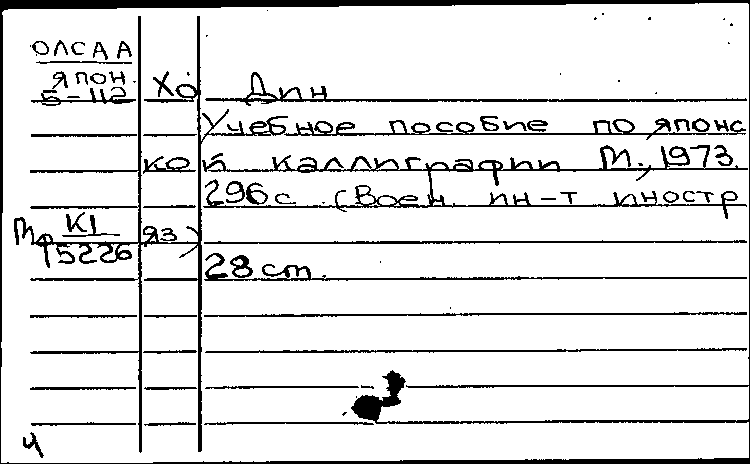 ОЛСАА
Япон
5-112 Хо Дин
Учебное пособие по японс
кой каллиграфии М., 1973.
296с (Воен. ин-т иностр
Мф К1 яз)
15226
28 cm.
4